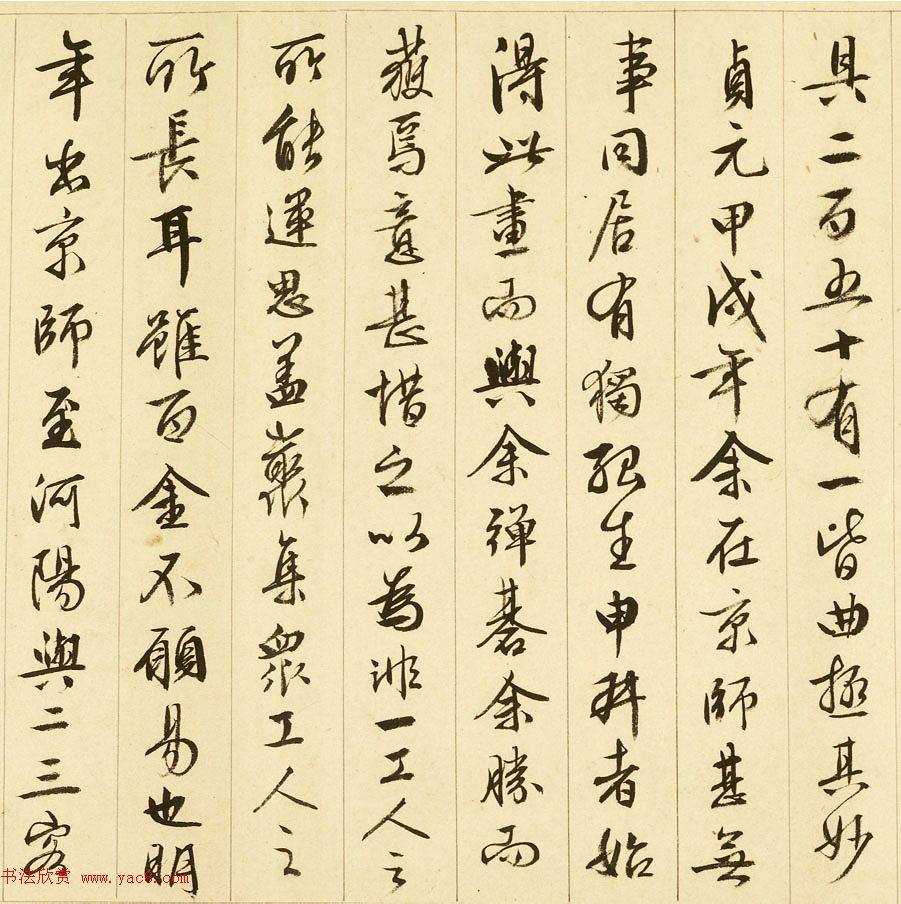 具二百五十有一皆曲極其妙
貞元甲戌年余在京師甚無
事同居有獨孤生申科者始
得此畫而與余彈碁余勝而
獲焉意甚惜之以為非一工人之
所能運思蓋藂集眾工人之
所長耳雖百金不願易也明
年出京師至河陽與二三客
书法欣赏 www.yac8.com